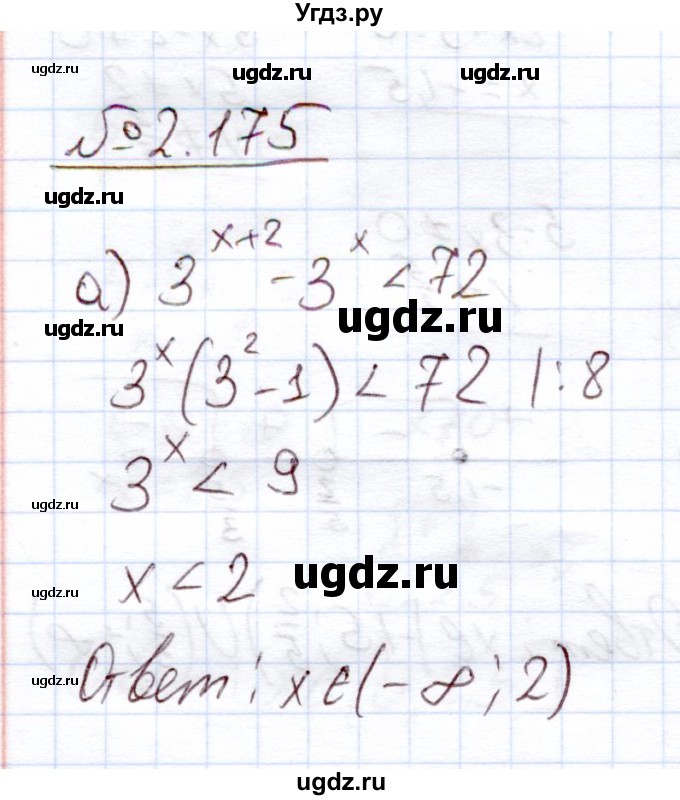 Угдз.ру
ugdz.ru ugdz.ru ugdz.ru
№2.175
ugdz.ru
а) 3^{x+2} - 3^x < 72
ugdz.ru ugdz.ru
3^x (3^2 - 1) < 72 |:8
3^x < 9
ugdz.ru
x < 2 ugdz.ru
ugdz.ru
Ответ: x ∈ (-∞; 2)
ugdz.ru
ugdz.ru